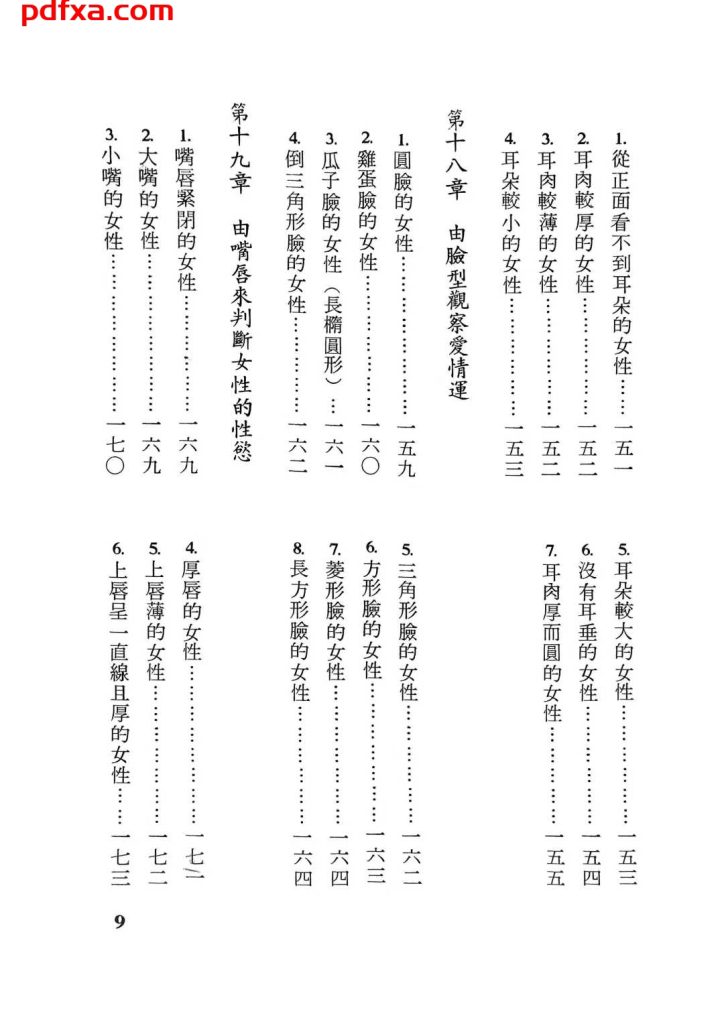 pdfxa.com
1.從正面看不到耳朵的女性……一五一
2.耳肉較厚的女性………………一五二
3.耳肉較薄的女性………………一五二
4.耳朵較小的女性………………一五三
5.耳朵較大的女性………………一五三
6.沒有耳垂的女性………………一五四
7.耳肉厚而圓的女性……………一五五
第十八章 由臉型觀察愛情運
1.圓臉的女性……………………一五九
2.雞蛋臉的女性…………………一六〇
3.瓜子臉的女性（長橢圓形）…一六一
4.倒三角形臉的女性……………一六二
5.三角形臉的女性………………一六二
6.方形臉的女性…………………一六三
7.菱形臉的女性…………………一六四
8.長方形臉的女性………………一六四
第十九章 由嘴唇來判斷女性的性慾
1.嘴唇緊閉的女性………………一六九
2.大嘴的女性……………………一六九
3.小嘴的女性……………………一七〇
4.厚唇的女性……………………一七
5.上唇薄的女性…………………一七二
6.上唇呈一直線且厚的女性……一七三
9